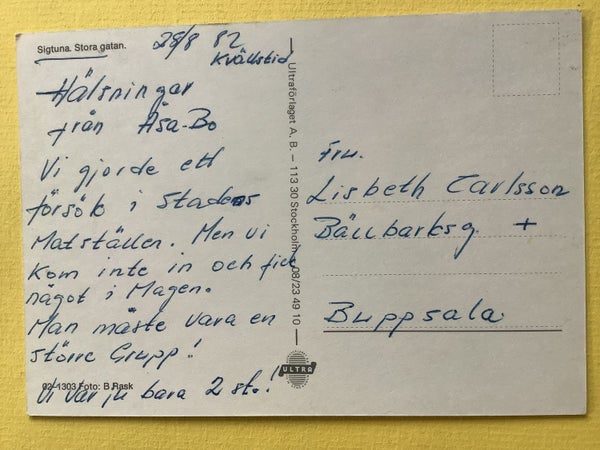 Sigtuna. Stora gatan.
28/8 82
Kvällstid
Hälsningar
från Åsa-Bo
Vi gjorde ett
försök i Stadens
Matställen. Men vi
kom inte in och fick
något i Magen.
Man måste vara en
större Grupp!
Vi var ju bara 2 st.!
02-1303 Foto: B.Rask
Ultraförlaget A. B. – 113 30 Stockholm – 08/23 49 10
ULTRA
Fru.
Lisbeth Carlsson
Bällbarksg +
Buppsala